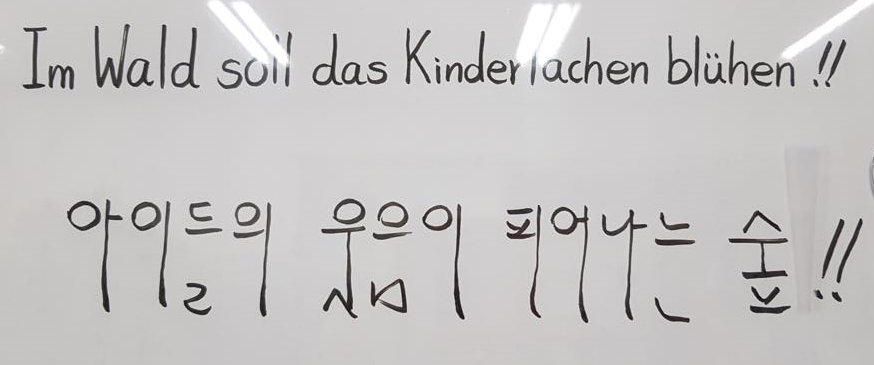 Im Wald soll das Kinderlachen blühen !!
아이들의 웃음이 피어나는 숲!!